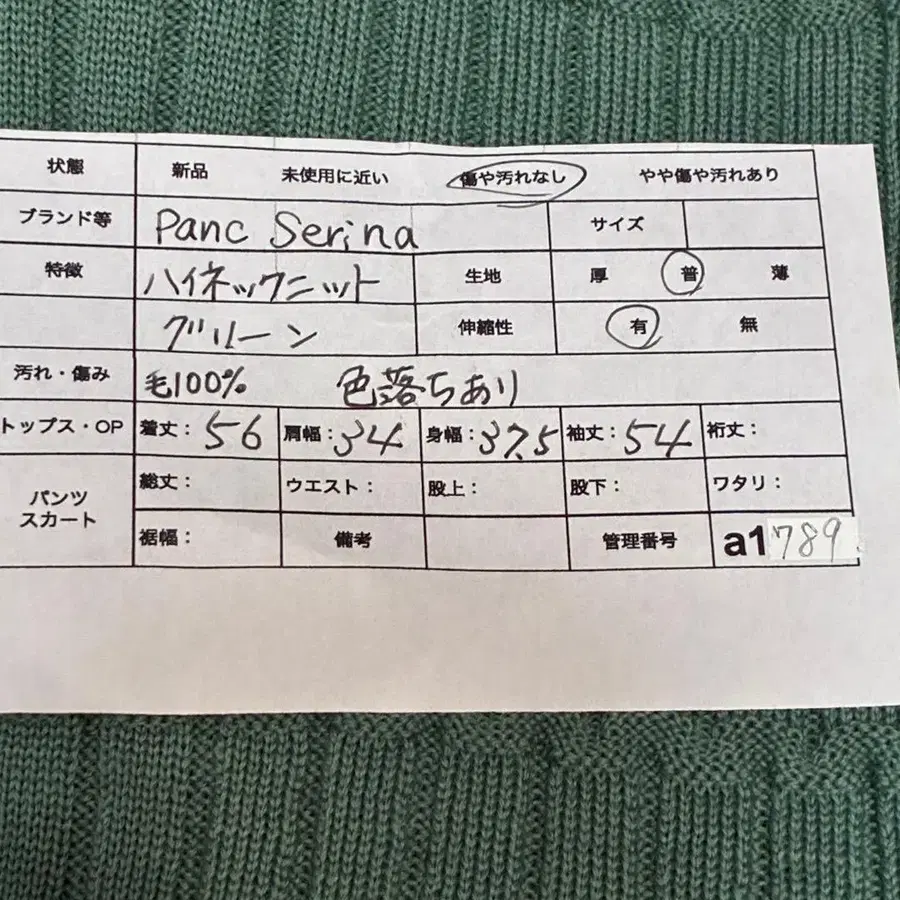 状態 新品 未使用に近い 傷や汚れなし やや傷や汚れあり
ブランド等 Panc Serina サイズ
特徴 ハイネックニット 生地 厚 普 薄
グリーン 伸縮性 有 無
汚れ・傷み 毛100% 色落ちあり
トップス・OP 着丈: 56 肩幅: 34 身幅: 37.5 袖丈: 54 裄丈:
パンツ スカート 総丈: ウエスト: 股上: 股下: ワタリ:
裾幅: 備考 管理番号 a1789